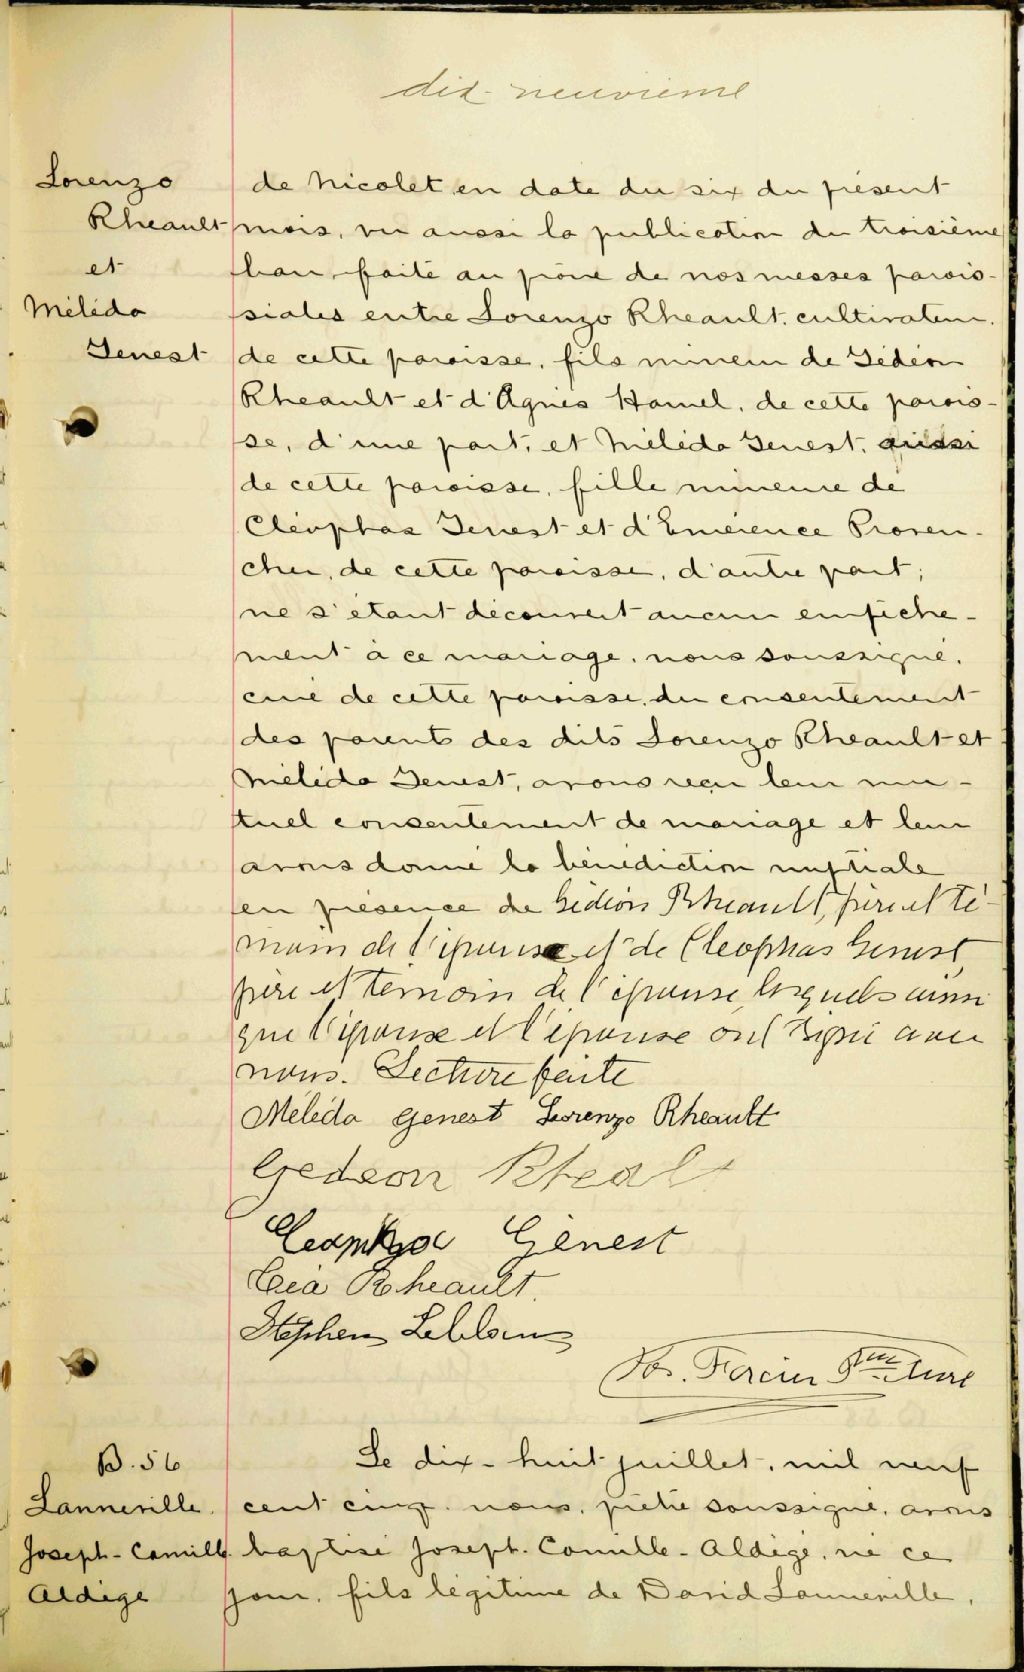 dix-neuvième
Lorenzo
Rheault
et
Méléda
Genest
de Nicolet en date du six du présent
mois, vu aussi la publication du troisième
ban faite au prône de nos messes parois-
siales entre Lorenzo Rheault, cultivateur,
de cette paroisse, fils mineur de Gédéon
Rheault et d'Agnès Hamel, de cette parois-
se, d'une part, et Méléda Genest, aussi
de cette paroisse, fille mineure de
Cléophas Genest et d'Emérence Proven-
cher, de cette paroisse, d'autre part;
ne s'étant découvert aucun empêche-
ment à ce mariage, nous soussigné,
curé de cette paroisse, du consentement
des parents des dits Lorenzo Rheault et
Méléda Genest, avons reçu leur mu-
tuel consentement de mariage et leur
avons donné la bénédiction nuptiale
en présence de Gédéon Rheault, père et té-
moin de l'époux et de Cléophas Genest,
père et témoin de l'épouse, lesquels ainsi
que l'époux et l'épouse ont signé avec
nous. Lecture faite
Méléda Genest Lorenzo Rheault
Gedeon Rhealt
Genest
Rheault.
Stephen Leblanc
Jos. Forcier Ptre Curé
B. 56
Lanneville
Joseph-Camille
Aldège
Le dix-huit juillet, mil neuf
cent cinq, nous, prêtre soussigné, avons
baptisé Joseph-Camille-Aldège, né ce
jour, fils légitime de David Lanneville,